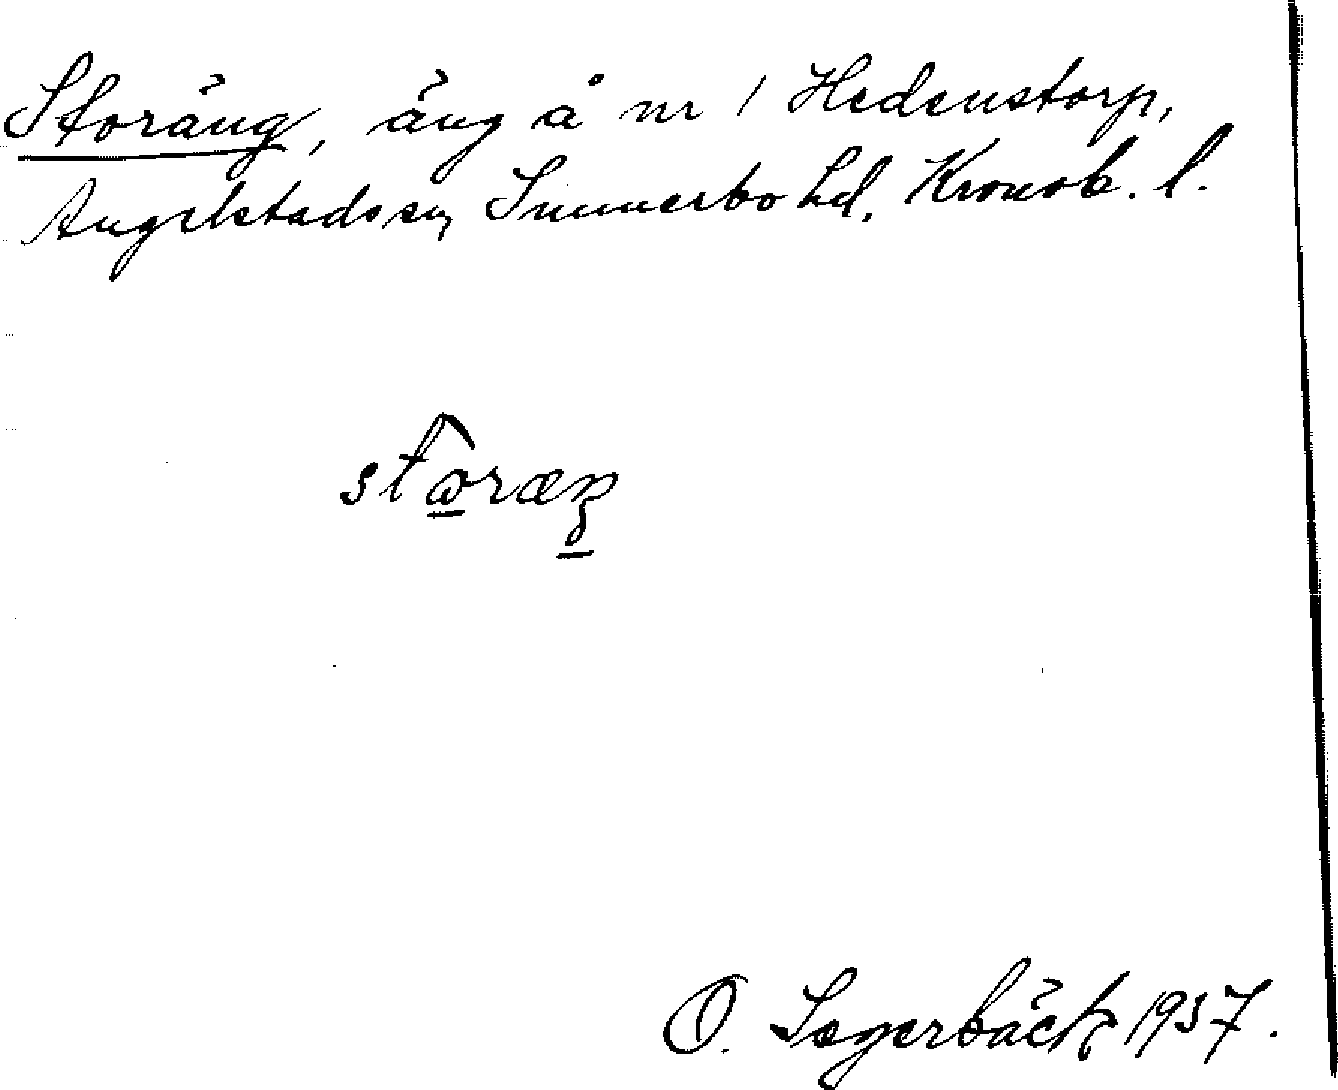 Storäng, äng å nr 1 Hedenstorp,
Angelstads sn, Sunnerbo hd. Kronob. l.
stω̂ræŋ
O. Segerbäck 1937.